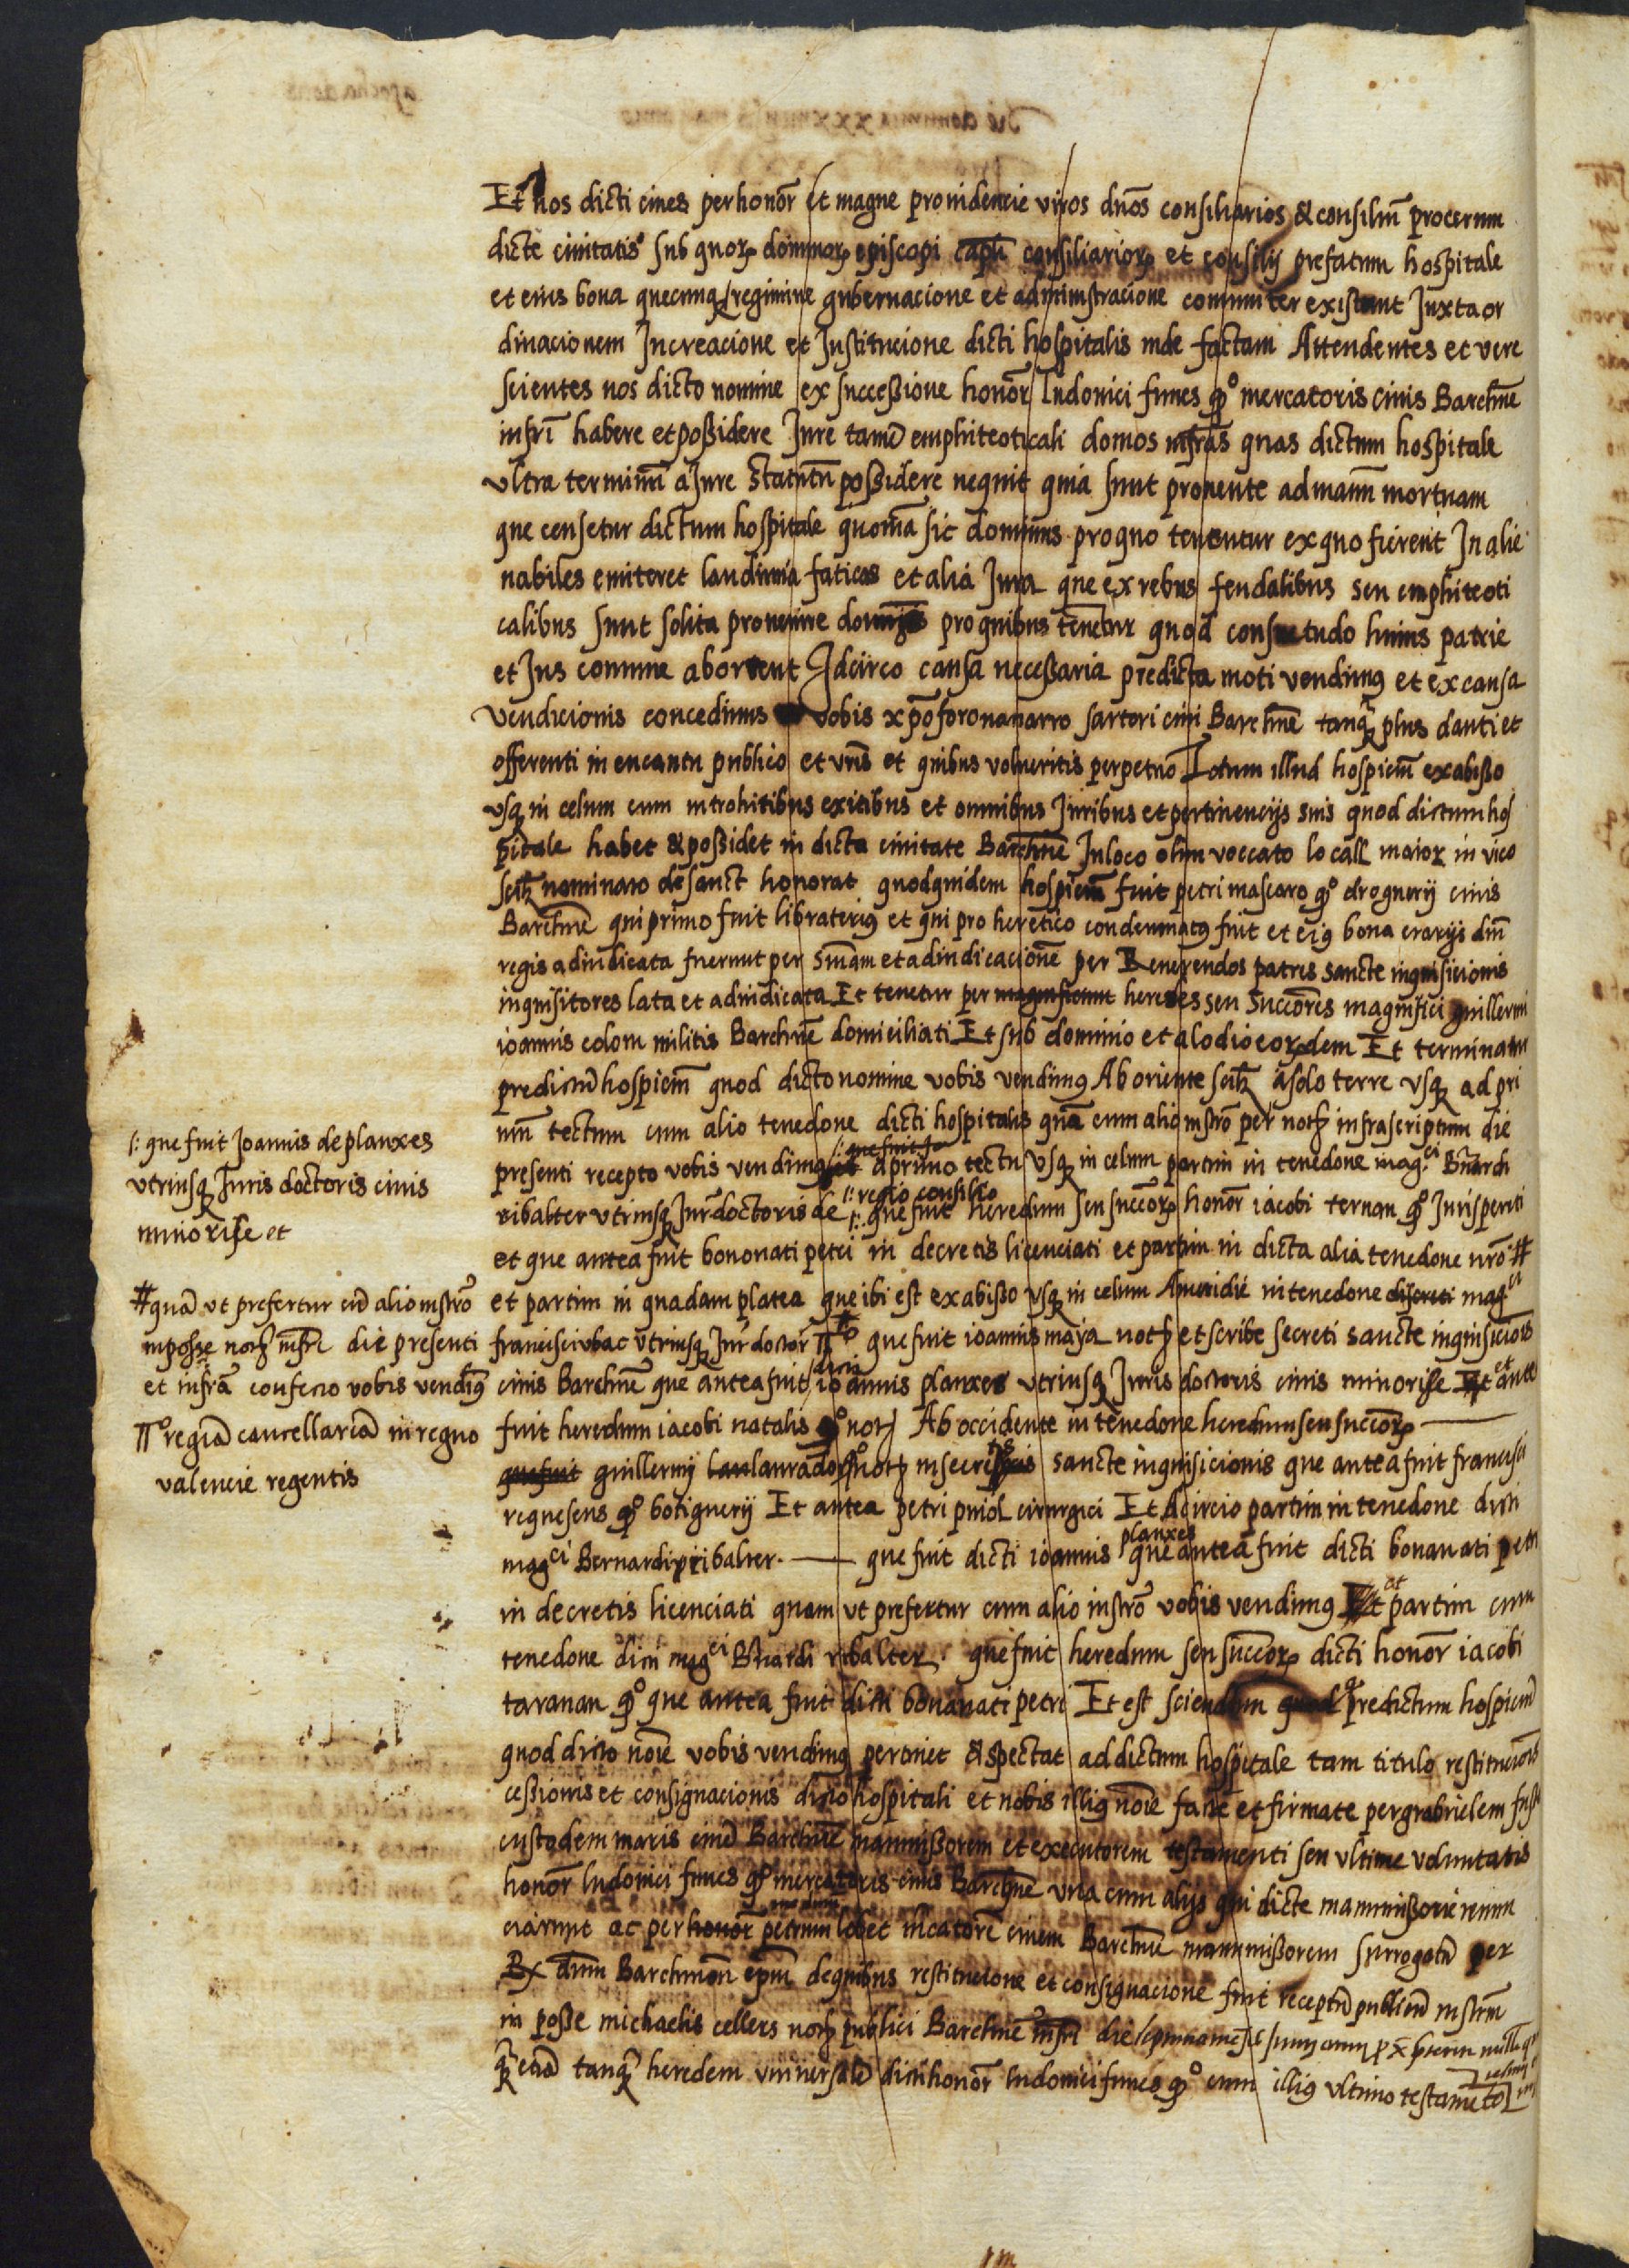 Et nos dicti cives per honor et magne providencie viros dnos consiliarios & consiliu procerum
dicte civitatis sub quorz dominorz episcopi caplī consiliariorz et consilij prefatum hospitale
et eius bona quecunqz regimine gubernacione et administracione comuniter existunt Juxta or
dinacionem Increacione et Institucione dicti hospitalis inde factam Attendentes et vere
scientes nos dicto nomine ex successione honor ludovici funes qo mercatoris civis Barchne
infri habere et possidere Jure tamē emphiteoticali domos infras quas dictum hospitale
ultra terminū a Jure statutū possidere nequit quia sunt provente ad manū mortuam
que censetur dictum hospitale quoniā sic dominus pro quo tenentur ex quo fierent Inalie
nabiles emiteret laudimia faticas et alia Jura que ex rebus feudalibus seu emphiteoti
calibus sunt solita provenire pro quibus tenetur quod consuetudo huius patrie
et Jus comune aborrent Idcirco causa necessaria predicta moti vendimus et ex causa
vendicionis concedimus vobis xpoforo navarro sartori civi Barchne tanqz plus danti et
offerenti in encantu publico et vris et quibus volueritis perpetuo Totum illud hospiciū ex abisso
usqz in celum cum introhitibus exitibus et omnibus Juribus et pertinencijs suis quod dictum hos
pitale habet & possidet in dicta civitate Barchne In loco olim voccato lo call maior in vico
scilz nominato de sanct honorat quodquidem hospiciū fuit petri mascaro qo droguerij civis
Barchne qui primo fuit libraterius et qui pro heretico condemnatus fuit et eius bona erarijs dni
regis adiudicata fuerunt per sniam et adiudicacionē per Reverendos patres sancte inquisicionis
inquisitores lata et adiudicata Et tenetur per magnificum heredes seu succores magnifici guillermi
ioannis colom militis Barchne domiciliati Et sub dominio et alodio eorzdem Et terminatur
predictū hospiciū quod dicto nomine vobis vendimus Ab oriente scilz a solo terre usqz ad pri
mū tectum cum alio tenedone dicti hospitalis quā cum alio instro per notz infrascriptum die
/: que fuit Joannis de planxes
utriusqz Juris doctoris civis
minorise et
presenti recepto vobis vendimus et /: que fuit Jo a primo tectu usqz in celum partim in tenedone mag.ci Bnardi
ribalter utriusqz Jur doctoris de /: regio consilio /: que fuit heredum seu succorz honor iacobi ternan qo Jurisperiti
et que antea fuit bononati petri in decretis licenciati et partim in dicta alia tenedone nro #
# quā ut prefertur cū alio instro
in posse notz infri die presenti
et infra confecto vobis vendimus
et partim in quadam platea que ibi est ex abisso usqz in celum A meridie in tenedone discreti mag.ci
francisci ubac utriusqz Jur doctor que fuit ioannis maya notz et scribe secreti sancte inquisicionis
civis Barchne que antea fuit dicti ioannis planxes utriusqz Juris doctoris civis minorise Et et ante
π regiā cancellariā in regno
valencie regentis
fuit heredum iacobi natalis qo notz Ab occidente in tenedone heredum seu succorz
que fuit guillermi laurador qo notz in secretis sancte inquisicionis que antea fuit francisci
requesens qo botiguerij Et antea petri puiol cirurgici Et A circio partim in tenedone dicti
mag.ci Bernardi ribalter. que fuit dicti ioannis planxes que antea fuit dicti bonanati petri
in decretis licenciati quam ut prefertur cum alio instro vobis vendimus Et et partim cum
tenedone dicti mag.ci Bnardi ribalter. que fuit heredum seu succorz dicti honor iacobi
taranan qo que antea fuit dicti bonanati petri Et est sciendum quod predictum hospiciū
quod dicto noie vobis vendimus pertinet & spectat ad dictum hospitale tam titulo restitucionis
cessionis et consignacionis dicto hospitali et nobis illius noie facte et firmate per grabrielem
custodem maris civē Barchne manumissorem et executorem testamenti seu ultime voluntatis
honor ludovici funes qo mercatoris civis Barchne una cum alijs qui dicte manumissorie renun
ciarunt ac per honor petrum mcatorē civem Barchne manumissorem surrogatū per
Rx dnm Barchnon epm de quibus restitucione et consignacione fuit receptū publicū instrm
in posse michaelis cellers notz publici Barchne infri die
qz eciā tanqz heredem universalē dicti honor ludovici funes qo cum illius ultimo testamēto